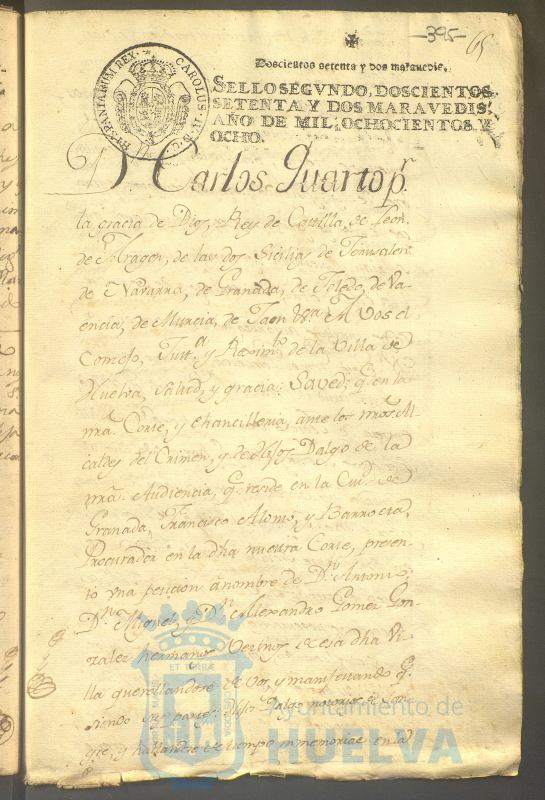 -395-
65
HISPANIARUM REX. CAROLUS IV D. G.
Doscientos setenta y dos maravedis.
SELLO SEGVNDO, DOSCIENTOS
SETENTA Y DOS MARAVEDIS,
AÑO DE MIL, OCHOCIENTOS Y
OCHO.
Dn Carlos Quarto pr.
la gracia de Dios, Rey de Castilla, de Leon,
de Aragon, de las dos Sicilias, de Jerusalen
de Navarra, de Granada, de Toledo, de Va-
encia, de Murcia, de Jaen &a. A Vos el
Concejo, Justa. y Regimto. de la Villa de
Huelva, salud, y gracia: Saved: q. en la
nra. Corte, y Chancilleria, ante los nros. Al-
caldes del Crimen, y de Hijos Dalgo de la
nra. Audiencia, q. reside en la Ciud. de
Granada, Franco. Alonso, y Barroeta,
Procurador en la dha nuestra Corte, presen-
tó una peticion a nombre de Dn. Antonio,
Dn. Miguel, y Dn. Alexandro Gomez Gon-
zalez hermanos Vecinos de esa dha Vi-
lla querellandose de Vos, y manifestando q.
siendo sus partes Hijos Dalgo notorios de San-
gre, y hallandose de tiempo inmemorial en la
ET TERRÆ
Ayuntamiento de
HUELVA